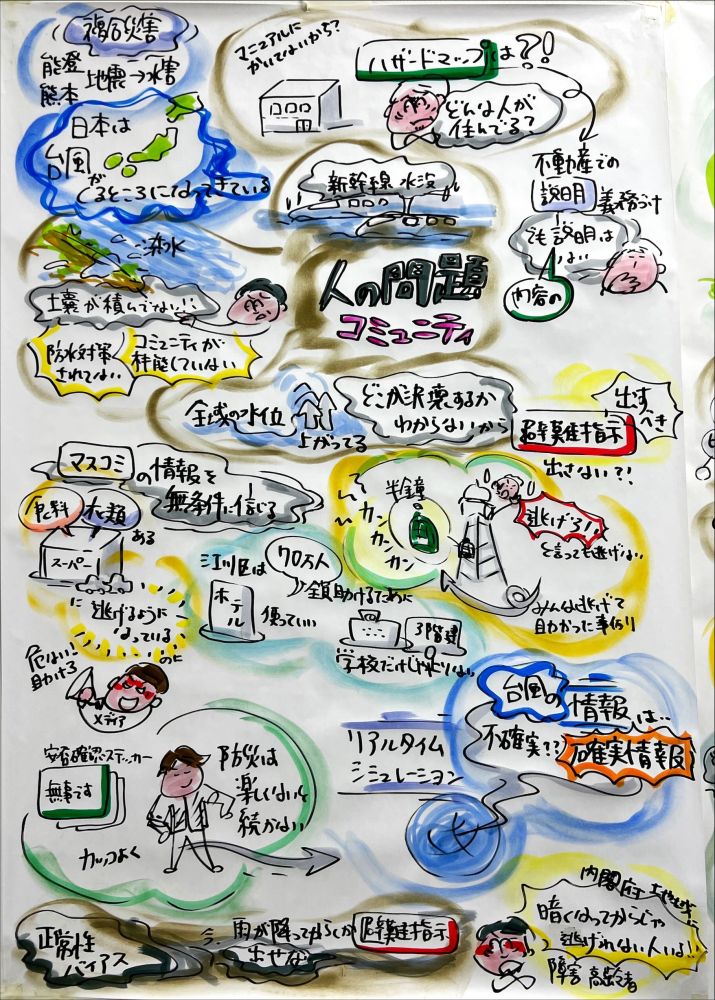 複合災害
能登
熊本
地震→水害
マニュアルに
かいてないから?
ハザードマップは?!
どんな人が
住んでる?
日本は
台風
が
くるところになってきている
新幹線 水没
不動産での
説明 義務づけ
でも説明は
ない
内容の
浸水
土嚢が積んでない!!
防水対策
されてない
コミュニティが
機能していない
人の問題
コミュニティ
全域の水位
上がってる
どこが決壊するか
わからないから
避難指示
出すべき
出さない?!
マスコミの情報を
無条件に信じる
食料
衣類
ある
スーパー
に逃げるように
なっている
のに
危ない!
助けろ
メディア
半鐘
カン
カン
カン
逃げろ!!
と言っても逃げない
みんな逃げて
助かった事例
江戸川区は
70万人
全員助けるために
ホテル
使っていい
3階建
学校だけじゃ足りない
台風の
情報
は…
不確実??
不確実情報
リアルタイム
シミュレーション
安否確認ステッカー
無事です
カッコよく
防災は
楽しくないと
続かない
正常性
バイアス
雨が降ってからしか
出せない
避難指示
内閣府
暗くなってからじゃ
逃げれない人いる!!
障害 高齢者